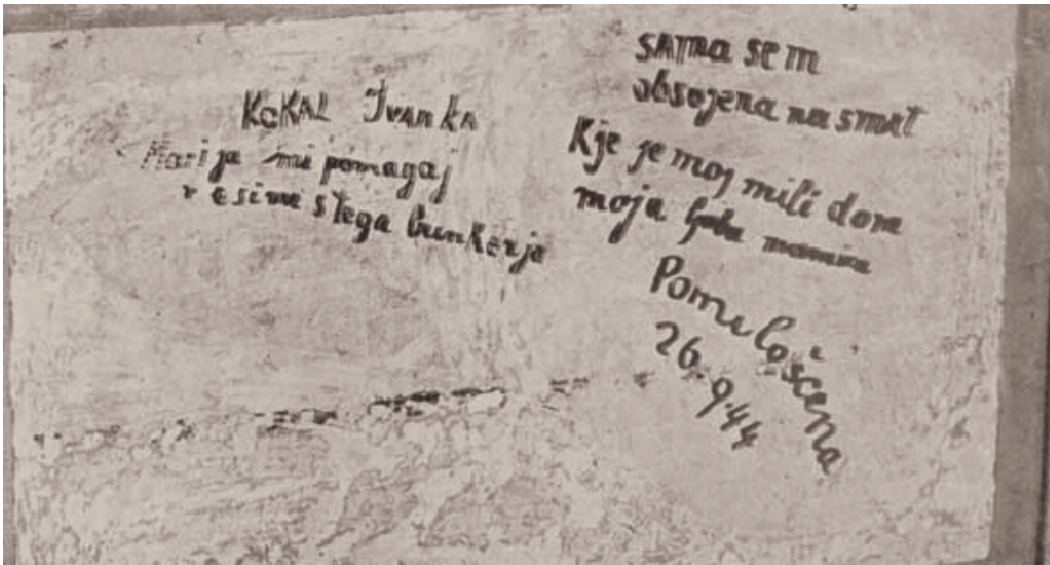 KOKAL Ivanka
Marija mi pomagaj
resi me s tega bunkerja
SAMA SEM
obsojena na smrt
Kje je moj mili dom
moja ljuba mamica
Pomiloščena
26.9 44